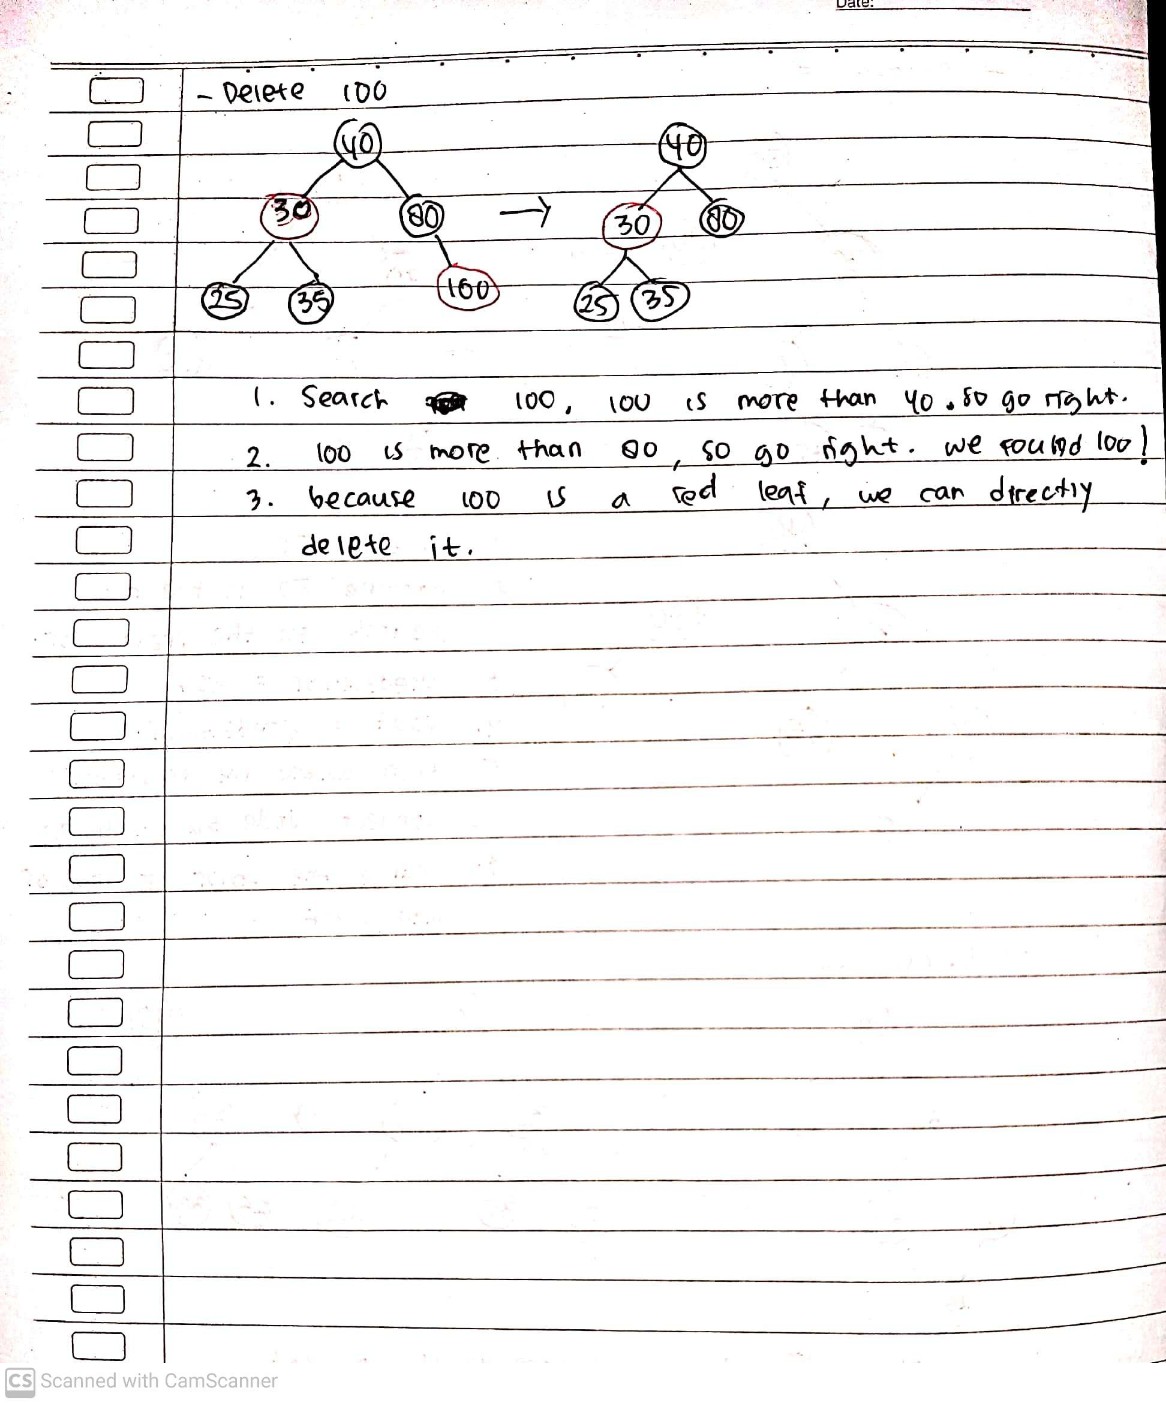 Date:
- Delete 100
40 40
30 80 → 30 80
25 35 100 25 35
1. Search 100, 100 is more than 40. so go right.
2. 100 is more than 80, so go right. we found 100!
3. because 100 is a red leaf, we can directly
delete it.
CS Scanned with CamScanner